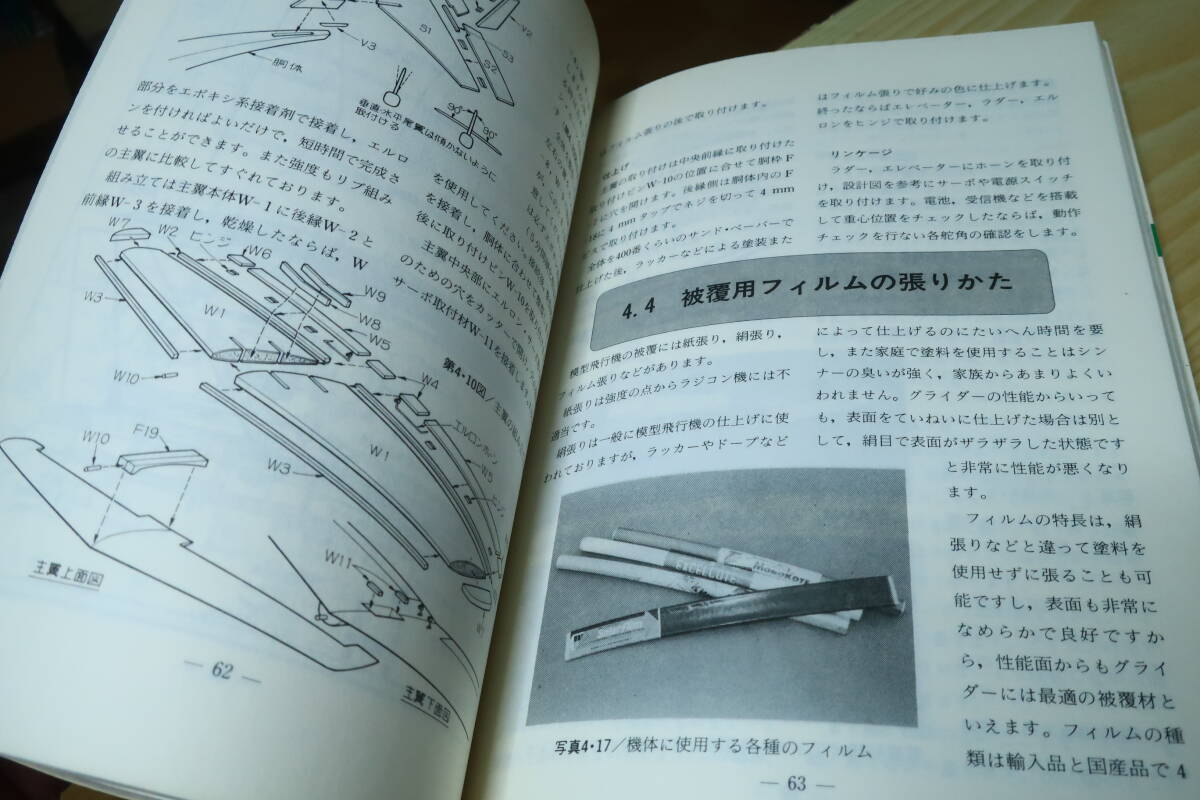 S1
V2
S3
S2
V3
胴体
垂直・水平尾翼は傾かないように
取付ける
90°
90°
部分をエポキシ系接着剤で接着し，エルロ
ンを付ければよいだけで，短時間で完成さ
せることができます。また強度もリブ組み
の主翼に比較してすぐれております。
組み立ては主翼本体W-1に後縁W-2と
前縁W-3を接着し，乾燥したならば，W
を使用してください。
を接着し，胴体に合わせて
後に取り付けピンW-10を
主翼中央部にエルロン・サー
のための穴をカッターで
サーボ取付材W-11を接着
W7
W2
ヒンジ
W6
W9
W3
W1
W8
W5
W10
W4
第4・10図／主翼の
エルロンホーン
W10
F19
W1
W5
W3
W11
主翼上面図
主翼下面図
— 62 —
フィルム張りの後で取り付けます。
主翼の取り付けは中央前縁に取り付けた
取り付けピンW-10の位置に合せて胴枠F
に穴を開けます。後縁側は胴体内のF
に4mmタップでネジを切って4mm
で取り付けます。
全体を400番くらいのサンド・ペーパーで
仕上げた後，ラッカーなどによる塗装また
はフィルム張りで好みの色に仕上げます。
終ったならばエレベーター，ラダー，エル
ロンをヒンジで取り付けます。
リンケージ
ラダー，エレベーターにホーンを取り付
け，設計図を参考にサーボや電源スイッチ
を取り付けます。電池，受信機などを搭載
して重心位置をチェックしたならば，動作
チェックを行ない各舵角の確認をします。
4.4 被覆用フィルムの張りかた
模型飛行機の被覆には紙張り，絹張り，
フィルム張りなどがあります。
紙張りは強度の点からラジコン機には不
適当です。
絹張りは一般に模型飛行機の仕上げに使
われておりますが，ラッカーやドープなど
によって仕上げるのにたいへん時間を要
し，また家庭で塗料を使用することはシン
ナーの臭いが強く，家族からあまりよくい
われません。グライダーの性能からいって
も，表面をていねいに仕上げた場合は別と
して，絹目で表面がザラザラした状態です
と非常に性能が悪くなり
ます。
フィルムの特長は，絹
張りなどと違って塗料を
使用せずに張ることも可
能ですし，表面も非常に
なめらかで良好ですか
ら，性能面からもグライ
ダーには最適の被覆材と
いえます。フィルムの種
類は輸入品と国産品で4
MONOKOTE
写真4・17／機体に使用する各種のフィルム
— 63 —